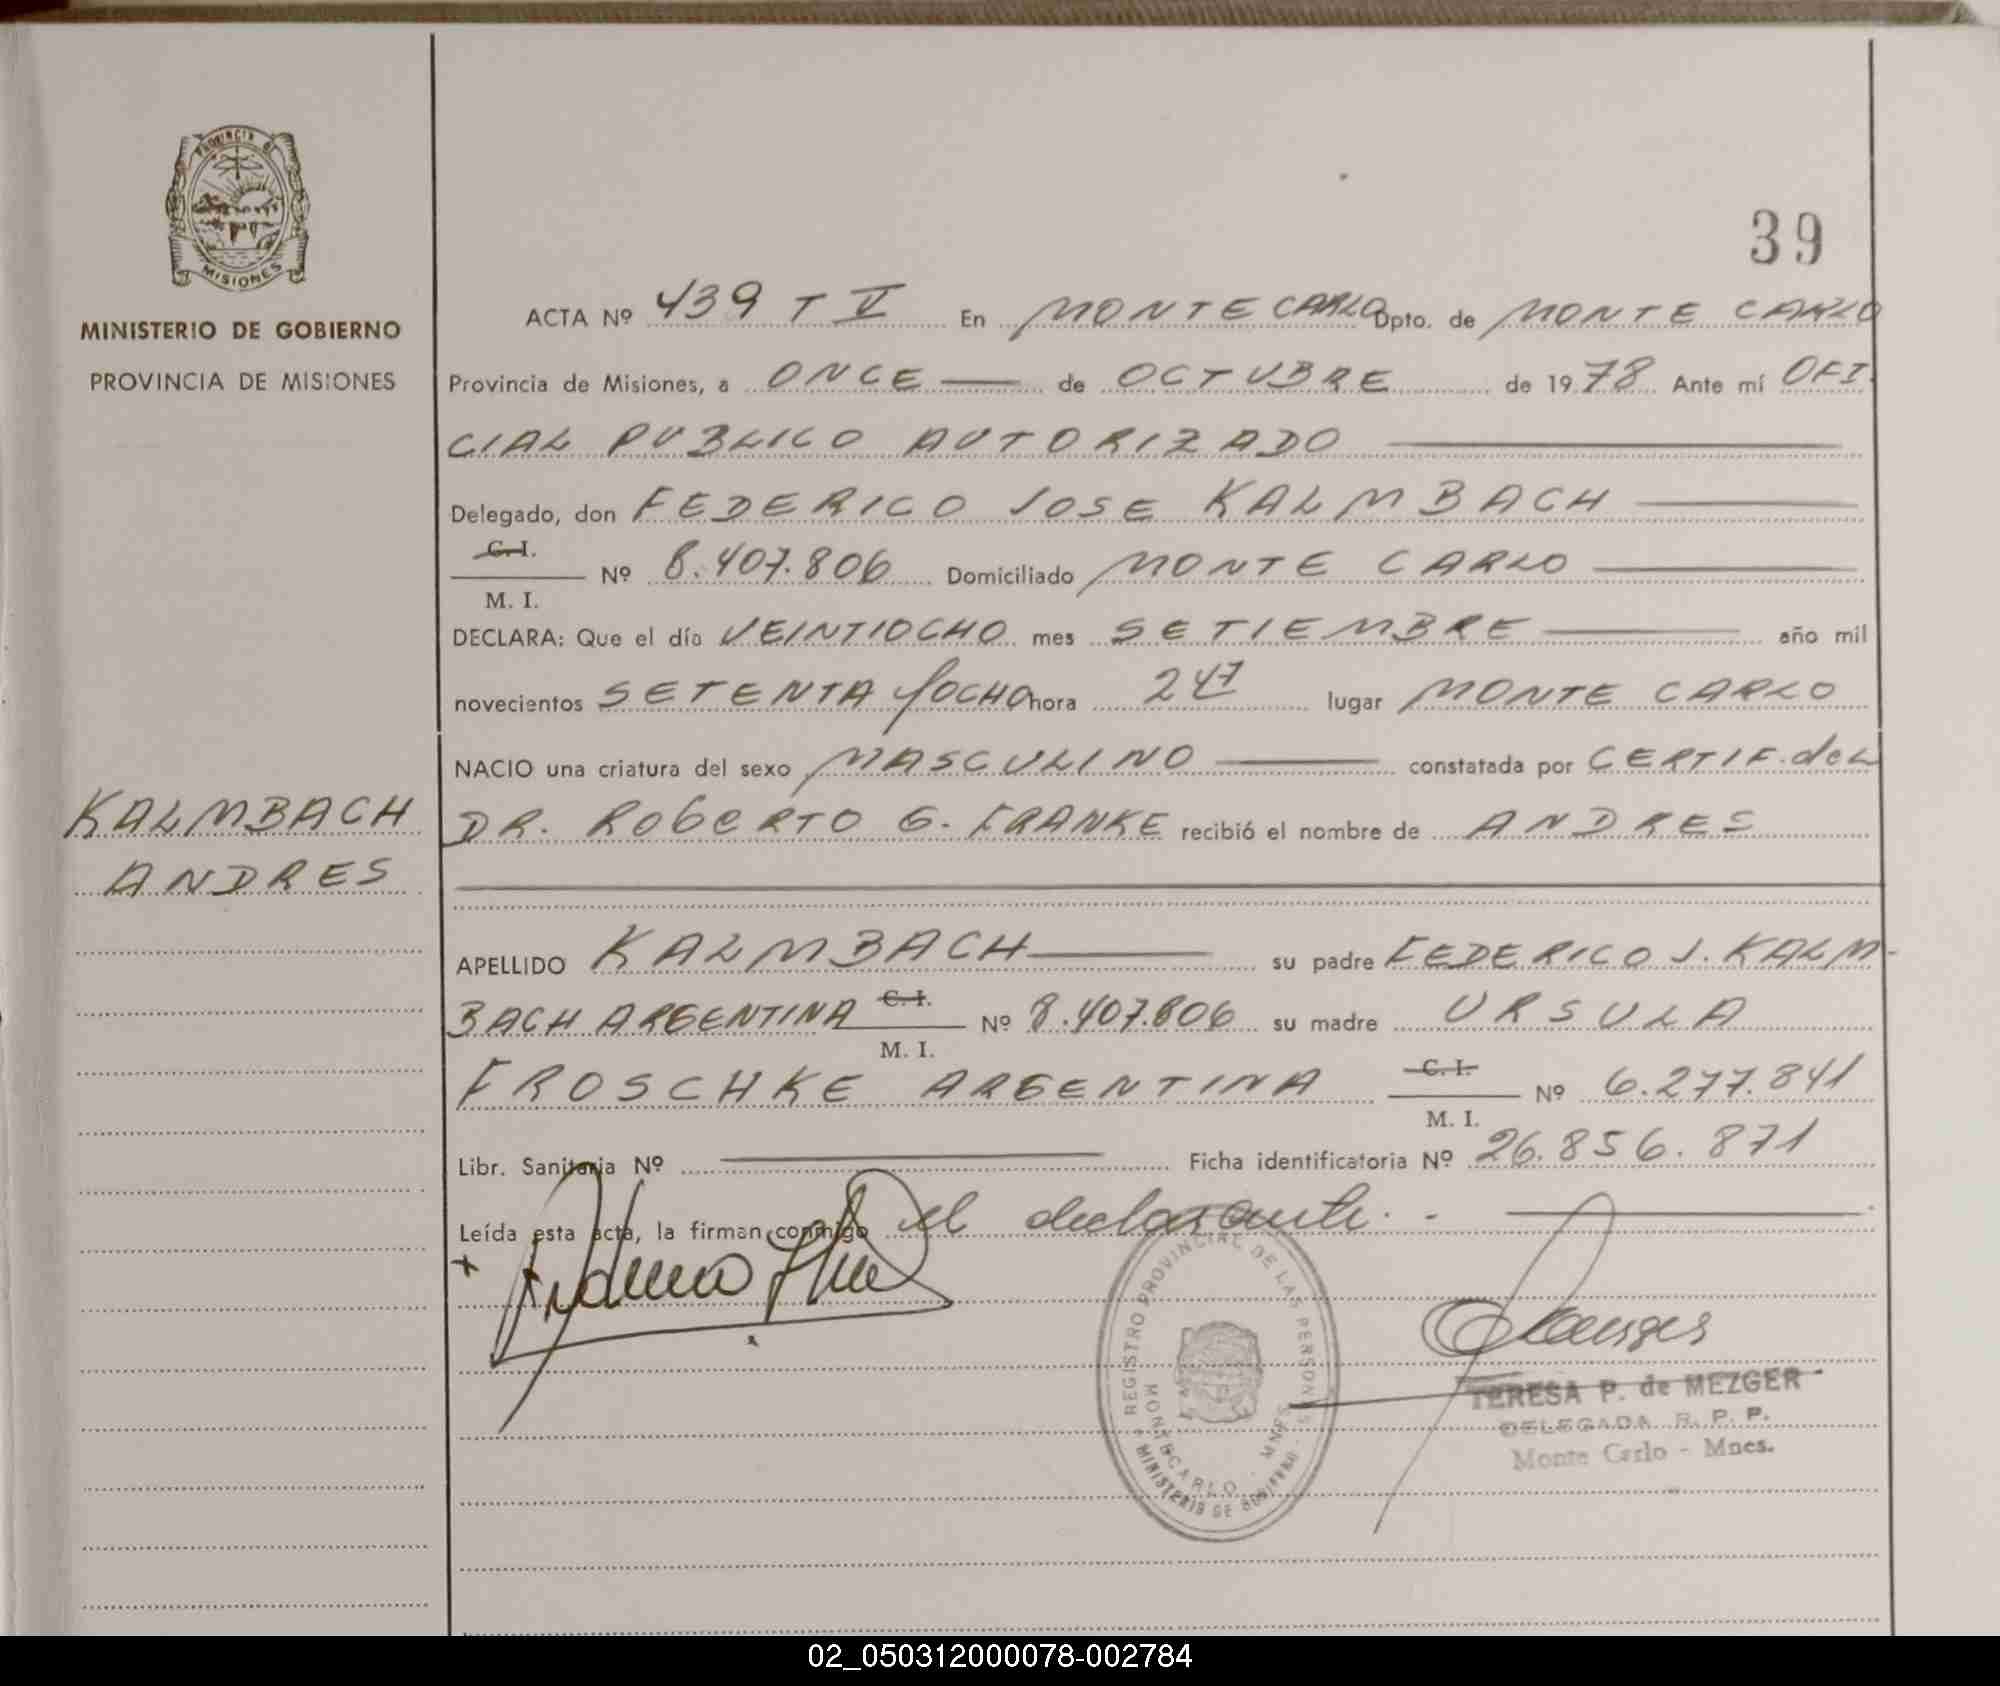 PROVINCIA DE
MISIONES
MINISTERIO DE GOBIERNO
PROVINCIA DE MISIONES
KALMBACH
ANDRES
39
ACTA Nº 439 T V En MONTECARLO Dpto. de MONTE CARLO
Provincia de Misiones, a ONCE — de OCTUBRE de 1978 Ante mí OFI-
CIAL PUBLICO AUTORIZADO
Delegado, don FEDERICO JOSE KALMBACH
C. I.
Nº 8.407.806 Domiciliado MONTE CARLO
M. I.
DECLARA: Que el día VEINTIOCHO mes SETIEMBRE año mil
novecientos SETENTA Y OCHO hora 2 47 lugar MONTE CARLO
NACIO una criatura del sexo MASCULINO constatada por CERTIF. del
DR. ROBERTO G. FRANKE recibió el nombre de ANDRES
APELLIDO KALMBACH su padre FEDERICO J. KALM-
BACH ARGENTINA C. I. Nº 8.407.806 su madre URSULA
M. I.
FROSCHKE ARGENTINA C. I. Nº 6.277.841
M. I.
Libr. Sanitaria Nº Ficha identificatoria Nº 26.856.871
Leída esta acta, la firman conmigo el declarante. -
REGISTRO PROVINCIAL DE LAS PERSONAS
MONTECARLO - MNES.
MINISTERIO DE GOBIERNO
TERESA P. de MEZGER
DELEGADA R. P. P.
Monte Carlo - Mnes.
02_050312000078-002784